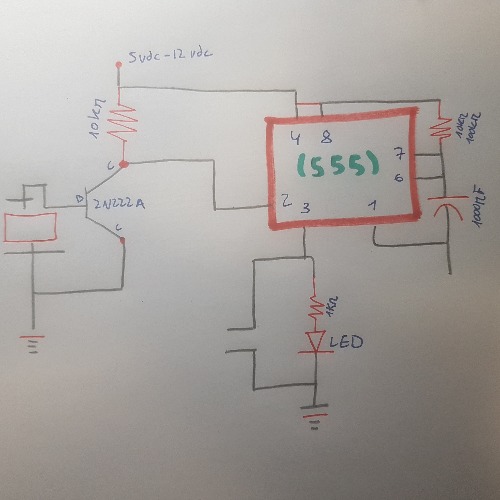 5vdc-12vdc
10kΩ
C
2N222A
4 8
(555)
7
6
2 3 1
10kΩ
100kΩ
1KΩ
LED